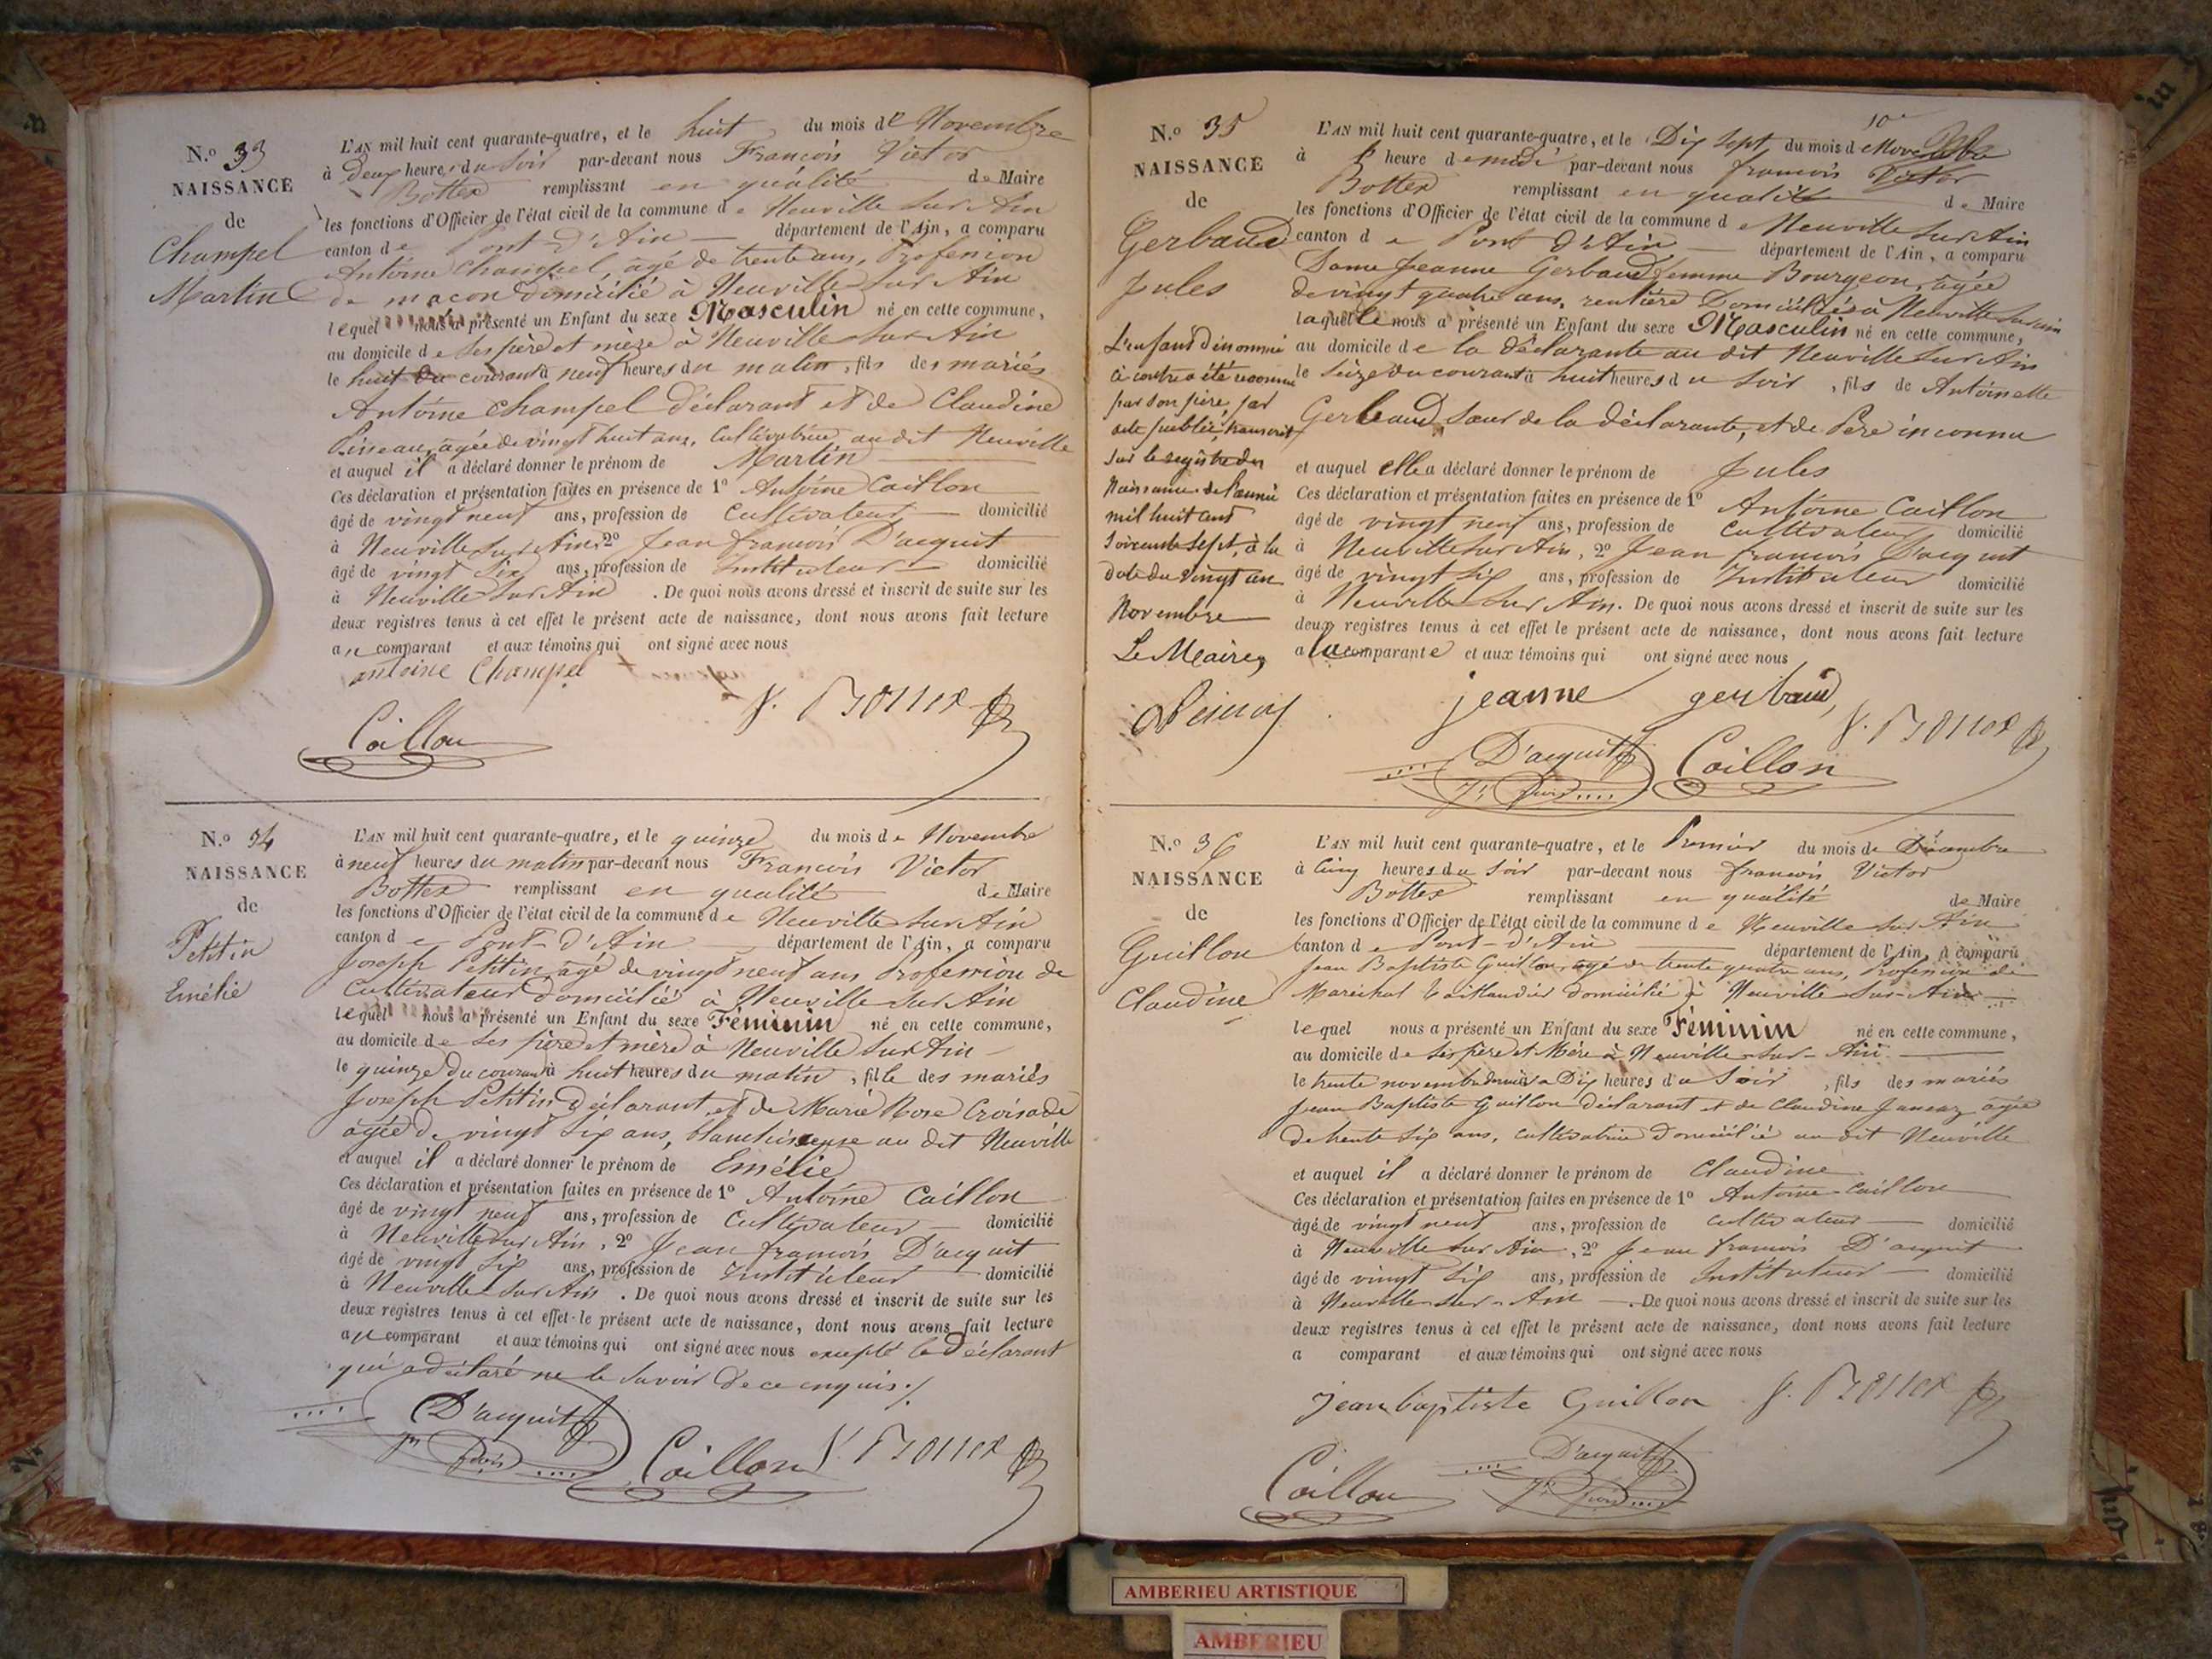 N.º 33
NAISSANCE
de
Champel
Martin
L'AN mil huit cent quarante-quatre, et le huit du mois de Novembre
à Deux heures du soir par-devant nous François Victor
Bottex remplissant en qualité de Maire
les fonctions d'Officier de l'état civil de la commune de Neuville sur Ain
canton de Pont-d'Ain département de l'Ain, a comparu
Antoine Champel, âgé de trente ans, Profession
de maçon domicilié à Neuville sur Ain
lequel nous a présenté un Enfant du sexe Masculin né en cette commune,
au domicile de ses père et mère à Neuville sur Ain
le huit du courant à neuf heures du matin, fils des mariés
Antoine Champel déclarant et de Claudine
âgée de vingt huit ans, Cultivatrice au dit Neuville
et auquel il a déclaré donner le prénom de Martin
Ces déclaration et présentation faites en présence de 1º Antoine Caillon
âgé de vingt neuf ans, profession de Cultivateur domicilié
à Neuville sur Ain, 2º Jean françois D'acquit
âgé de vingt six ans, profession de Instituteur domicilié
à Neuville sur Ain. De quoi nous avons dressé et inscrit de suite sur les
deux registres tenus à cet effet le présent acte de naissance, dont nous avons fait lecture
au comparant et aux témoins qui ont signé avec nous
antoine Champel
f. Bottex
Caillon
N.º 34
NAISSANCE
de
Petitin
Emélie
L'AN mil huit cent quarante-quatre, et le quinze du mois de Novembre
à neuf heures du matin par-devant nous François Victor
Bottex remplissant en qualité de Maire
les fonctions d'Officier de l'état civil de la commune de Neuville sur Ain
canton de Pont-d'Ain département de l'Ain, a comparu
Joseph Petitin âgé de vingt neuf ans Profession de
Cultivateur domicilié à Neuville sur Ain
lequel nous a présenté un Enfant du sexe Féminin né en cette commune,
au domicile de ses père et mère à Neuville sur Ain
le quinze du courant à huit heures du matin, fille des mariés
Joseph Petitin déclarant et de Marie Rose Croisade
âgée de vingt six ans, blanchisseuse au dit Neuville
et auquel il a déclaré donner le prénom de Emélie
Ces déclaration et présentation faites en présence de 1º Antoine Caillon
âgé de vingt neuf ans, profession de Cultivateur domicilié
à Neuville sur Ain, 2º Jean françois D'acquit
âgé de vingt six ans, profession de Instituteur domicilié
à Neuville sur Ain. De quoi nous avons dressé et inscrit de suite sur les
deux registres tenus à cet effet le présent acte de naissance, dont nous avons fait lecture
au comparant et aux témoins qui ont signé avec nous excepté le déclarant
qui a déclaré ne le savoir de ce enquis./.
D'acquit
Caillon f. Bottex
N.º 35
NAISSANCE
de
Gerbaud
Jules
L'enfant dénommé
ci contre a été reconnu
par son père, par
acte publié, transcrit
sur le registre des
Naissances de l'année
mil huit cent
soixante sept, à la
date du vingt un
Novembre
Le Maire,
10
L'AN mil huit cent quarante-quatre, et le Dix sept du mois de Novembre
à heure de midi par-devant nous françois Victor
Bottex remplissant en qualité de Maire
les fonctions d'Officier de l'état civil de la commune de Neuville sur Ain
canton de Pont d'Ain département de l'Ain, a comparu
Dame Jeanne Gerbaud femme Bourgeon, âgée
de vingt quatre ans, rentière Domiciliée à Neuville sur ain
laquelle nous a présenté un Enfant du sexe Masculin né en cette commune,
au domicile de la déclarante au dit Neuville sur Ain
le seize du courant à huit heures du soir, fils de Antoinette
Gerbaud, sœur de la déclarante, et de Père inconnu
et auquel elle a déclaré donner le prénom de Jules
Ces déclaration et présentation faites en présence de 1º Antoine Caillon
âgé de vingt neuf ans, profession de cultivateur domicilié
à Neuville sur Ain, 2º Jean françois Dacquit
âgé de vingt six ans, profession de Instituteur domicilié
à Neuville sur Ain. De quoi nous avons dressé et inscrit de suite sur les
deux registres tenus à cet effet le présent acte de naissance, dont nous avons fait lecture
a la comparante et aux témoins qui ont signé avec nous
jeanne gerbaud
f. Bottex
D'acquit Caillon
N.º 36
NAISSANCE
de
Guillon
Claudine
L'AN mil huit cent quarante-quatre, et le Premier du mois de Décembre
à Cinq heures du soir par-devant nous françois Victor
Bottex remplissant en qualité de Maire
les fonctions d'Officier de l'état civil de la commune de Neuville sur Ain
canton de Pont-d'Ain département de l'Ain, a comparu
Jean Baptiste Guillon, âgé de trente quatre ans, Profession de
Maréchal taillandier domicilié à Neuville sur-Ain
lequel nous a présenté un Enfant du sexe Féminin né en cette commune,
au domicile de ses père et Mère à Neuville-sur-Ain
le trente novembre dernier à Dix heures du Soir, fils des mariés
Jean Baptiste Guillon déclarant et de Claudine Janeaz âgée
de trente six ans, cultivatrice domicilié au dit Neuville
et auquel il a déclaré donner le prénom de Claudine
Ces déclaration et présentation faites en présence de 1º Antoine Caillon
âgé de vingt neuf ans, profession de cultivateur domicilié
à Neuville sur Ain, 2º Jean françois D'acquit
âgé de vingt six ans, profession de Instituteur domicilié
à Neuville-sur-Ain. De quoi nous avons dressé et inscrit de suite sur les
deux registres tenus à cet effet le présent acte de naissance, dont nous avons fait lecture
a comparant et aux témoins qui ont signé avec nous
jean baptiste Guillon f. Bottex
Caillon D'acquit
AMBERIEU ARTISTIQUE
AMBERIEU